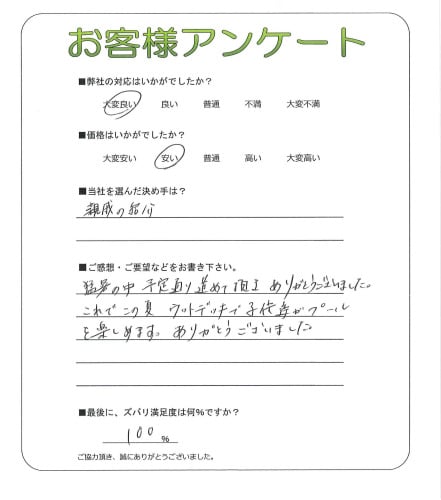 お客様アンケート
■弊社の対応はいかがでしたか？
大変良い 良い 普通 不満 大変不満
■価格はいかがでしたか？
大変安い 安い 普通 高い 大変高い
■当社を選んだ決め手は？
親戚の紹介
■ご感想・ご要望などをお書き下さい。
猛暑の中 予定通り進めて頂き ありがとうございました。
これで この夏 ウッドデッキで 子供達が プール
を楽しめます。 ありがとうございました
■最後に、ズバリ満足度は何%ですか？
100 %
ご協力頂き、誠にありがとうございました。